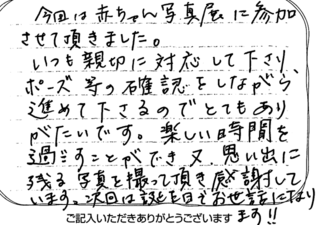 今回は赤ちゃん写真展に参加
させて頂きました。
いつも親切に対応して下さり、
ポーズ等の確認をしながら、
進めて下さるのでとてもあり
がたいです。楽しい時間を
過ごすことができ又、思い出に
残る写真を撮って頂き感謝して
います。次回は誕生日でお世話になり
ます!!
ご記入いただきありがとうございます